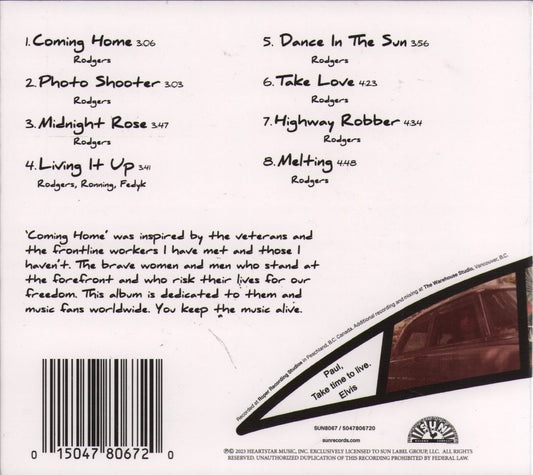 1. Coming Home 3:06
Rodgers
2. Photo Shooter 3:03
Rodgers
3. Midnight Rose 3:47
Rodgers
4. Living It Up 3:41
Rodgers, Ronning, Fedyk
5. Dance In The Sun 3:56
Rodgers
6. Take Love 4:23
Rodgers
7. Highway Robber 4:34
Rodgers
8. Melting 4:48
Rodgers
'Coming Home' was inspired by the veterans and
the frontline workers I have met and those I
haven't. The brave women and men who stand at
the forefront and who risk their lives for our
freedom. This album is dedicated to them and
music fans worldwide. You keep the music alive.
Recorded at Roper Recording Studios in Peachland, B.C. Canada. Additional recording and mixing at The Warehouse Studio, Vancouver, B.C.
Paul,
Take time to live.
Elvis
SUN8067 / 5047806720
sunrecords.com
SUN
0 15047 80672 0
℗© 2023 HEARTSTAR MUSIC, INC. EXCLUSIVELY LICENSED TO SUN LABEL GROUP, LLC. ALL RIGHTS
RESERVED. UNAUTHORIZED DUPLICATION OF THIS RECORDING PROHIBITED BY FEDERAL LAW.